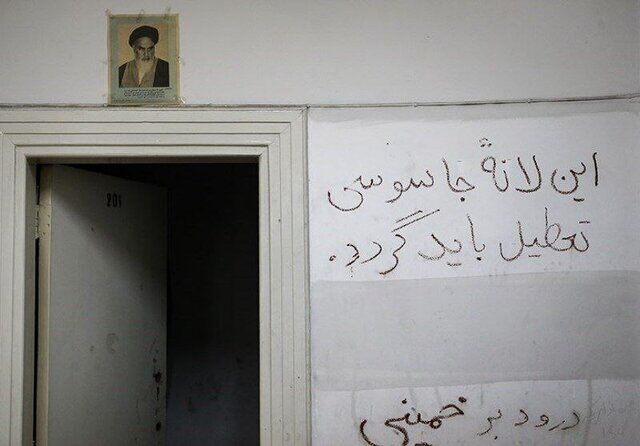 201
این لانهٔ جاسوسی
تعطیل باید گردد.
درود بر خمینی